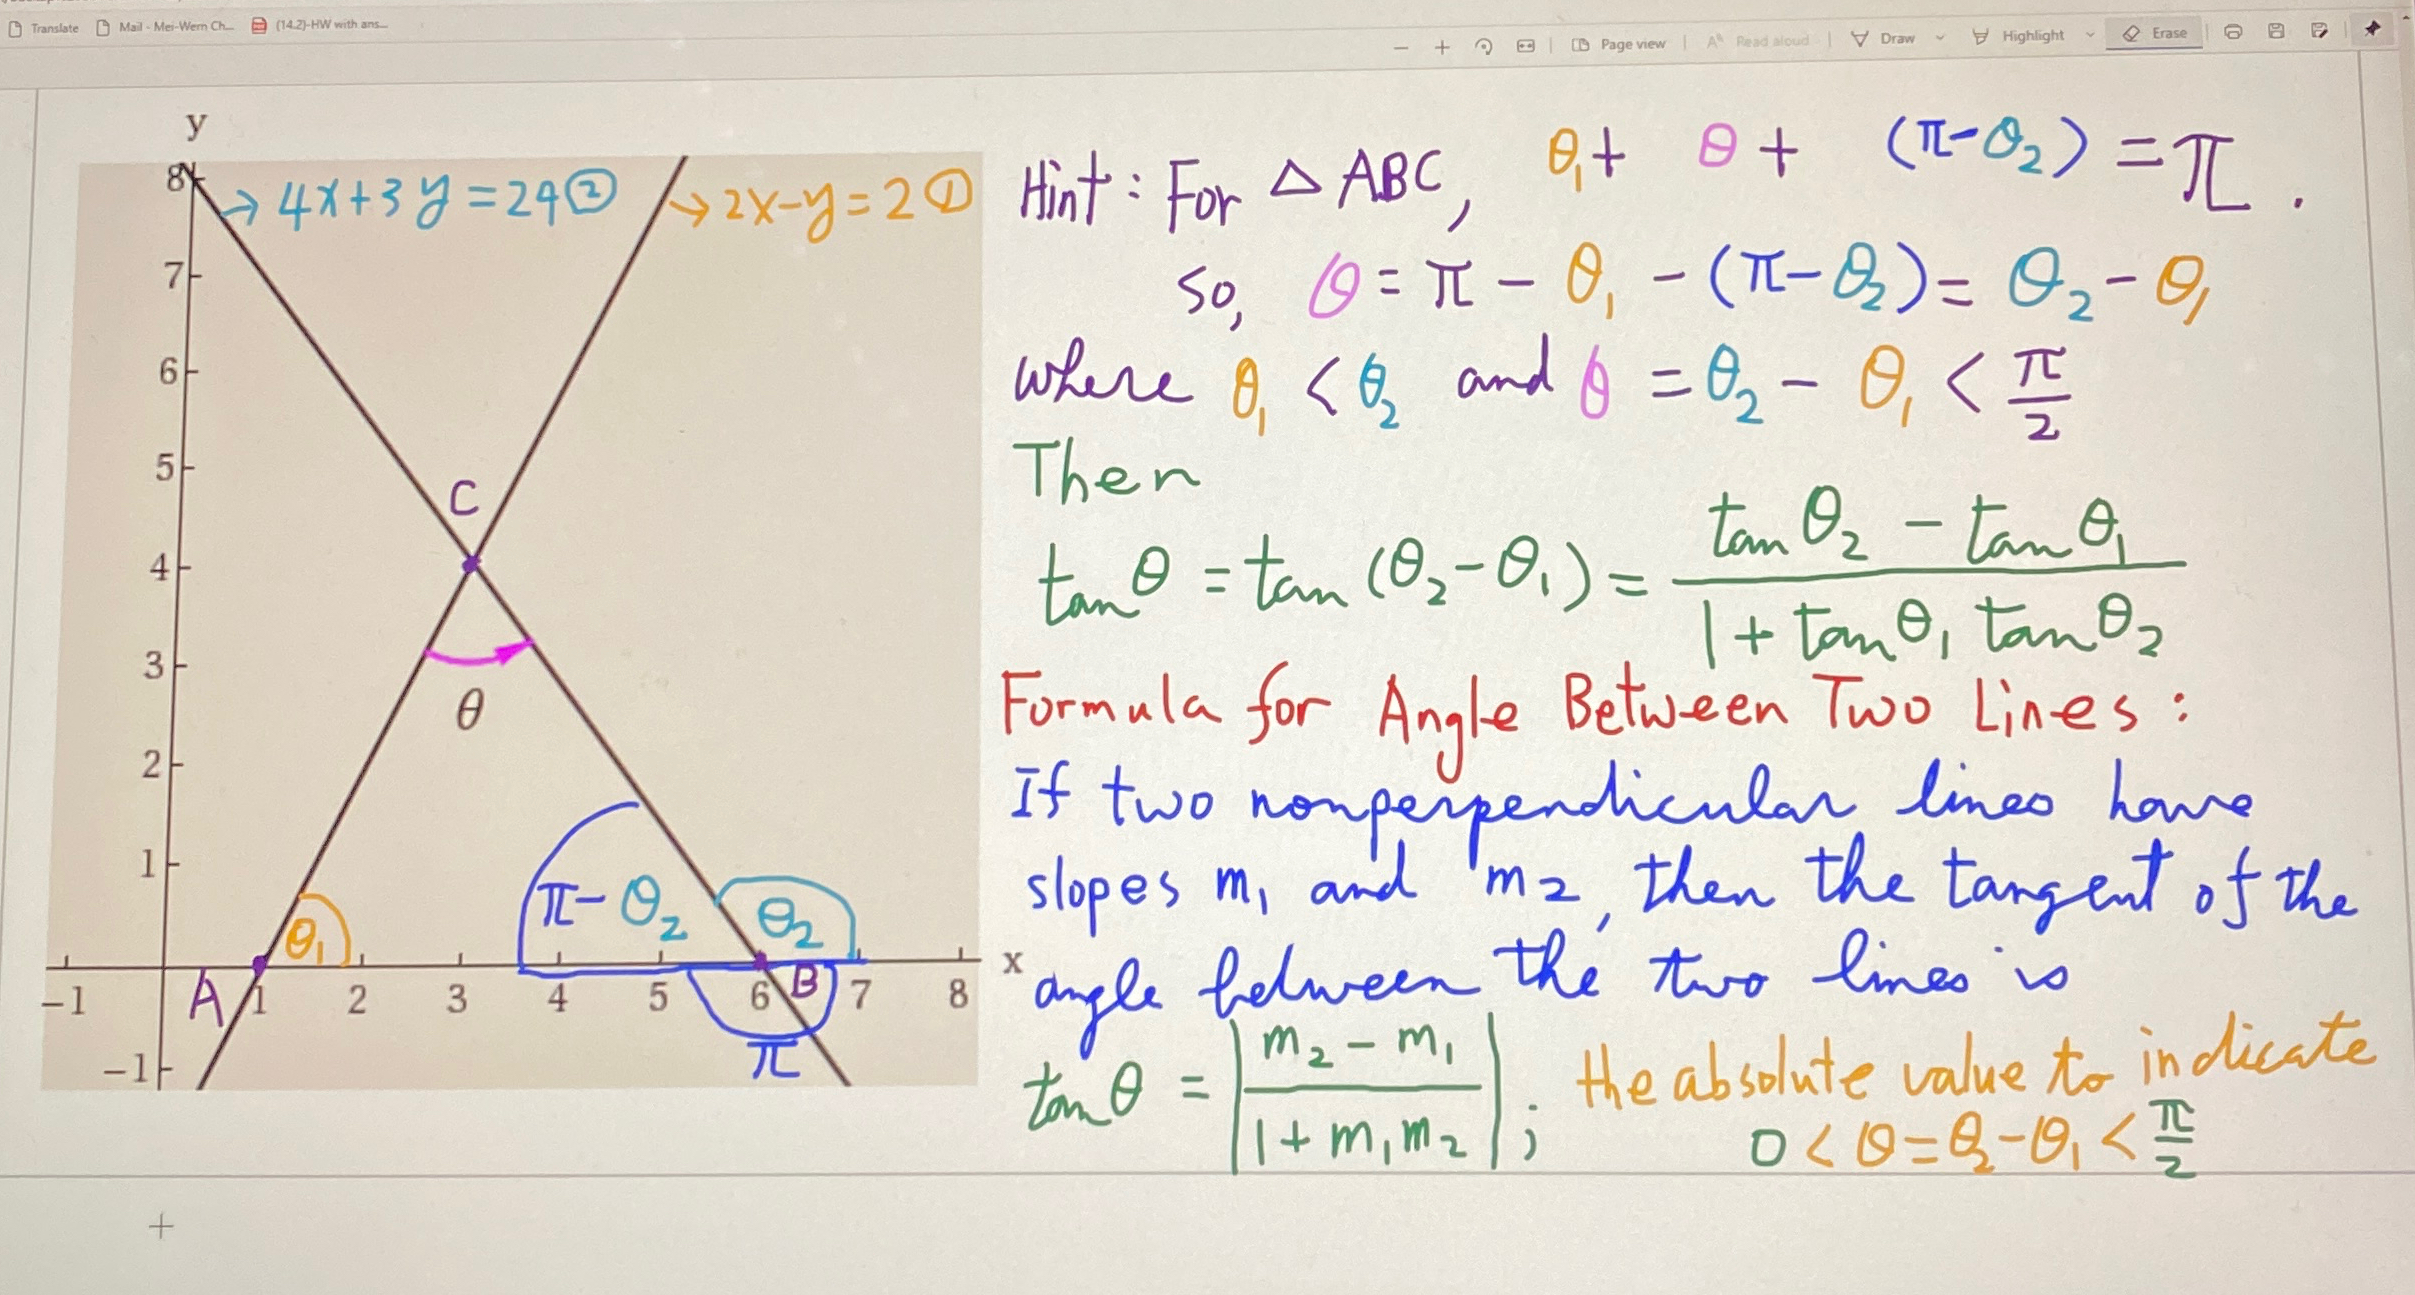 Translate Mail - Mei-Wern Ch... (14.2)-HW with ans...
Page view Read aloud Draw Highlight Erase
y
8 → 4x+3y=24② → 2x-y=2①
7
6
5
C
4
3
θ
2
1
π-θ₂ θ₂
θ₁
x
-1 A 1 2 3 4 5 6 B 7 8
-1 π
Hint: For △ABC, θ₁+ θ+ (π-θ₂)=π.
so, θ=π-θ₁-(π-θ₂)=θ₂-θ₁
where θ₁<θ₂ and θ=θ₂-θ₁<π/2
Then
tanθ=tan(θ₂-θ₁)= (tanθ₂-tanθ₁)/(1+tanθ₁tanθ₂)
Formula for Angle Between Two Lines:
If two nonperpendicular lines have
slopes m₁ and m₂, then the tangent of the
angle between the two lines is
tanθ=|(m₂-m₁)/(1+m₁m₂)|; the absolute value to indicate
0<θ=θ₂-θ₁<π/2